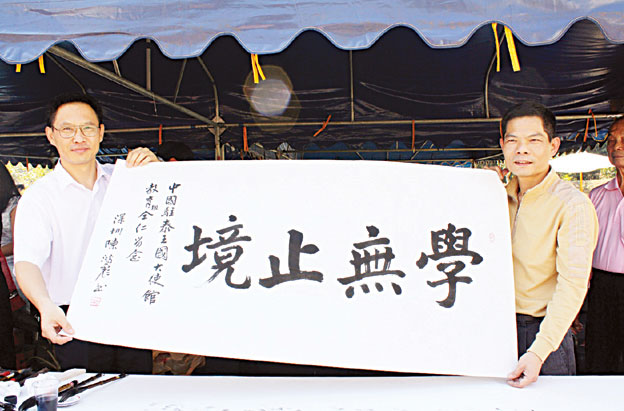 學無止境
中國駐泰王國大使館
教育組全仁留念
深圳陳